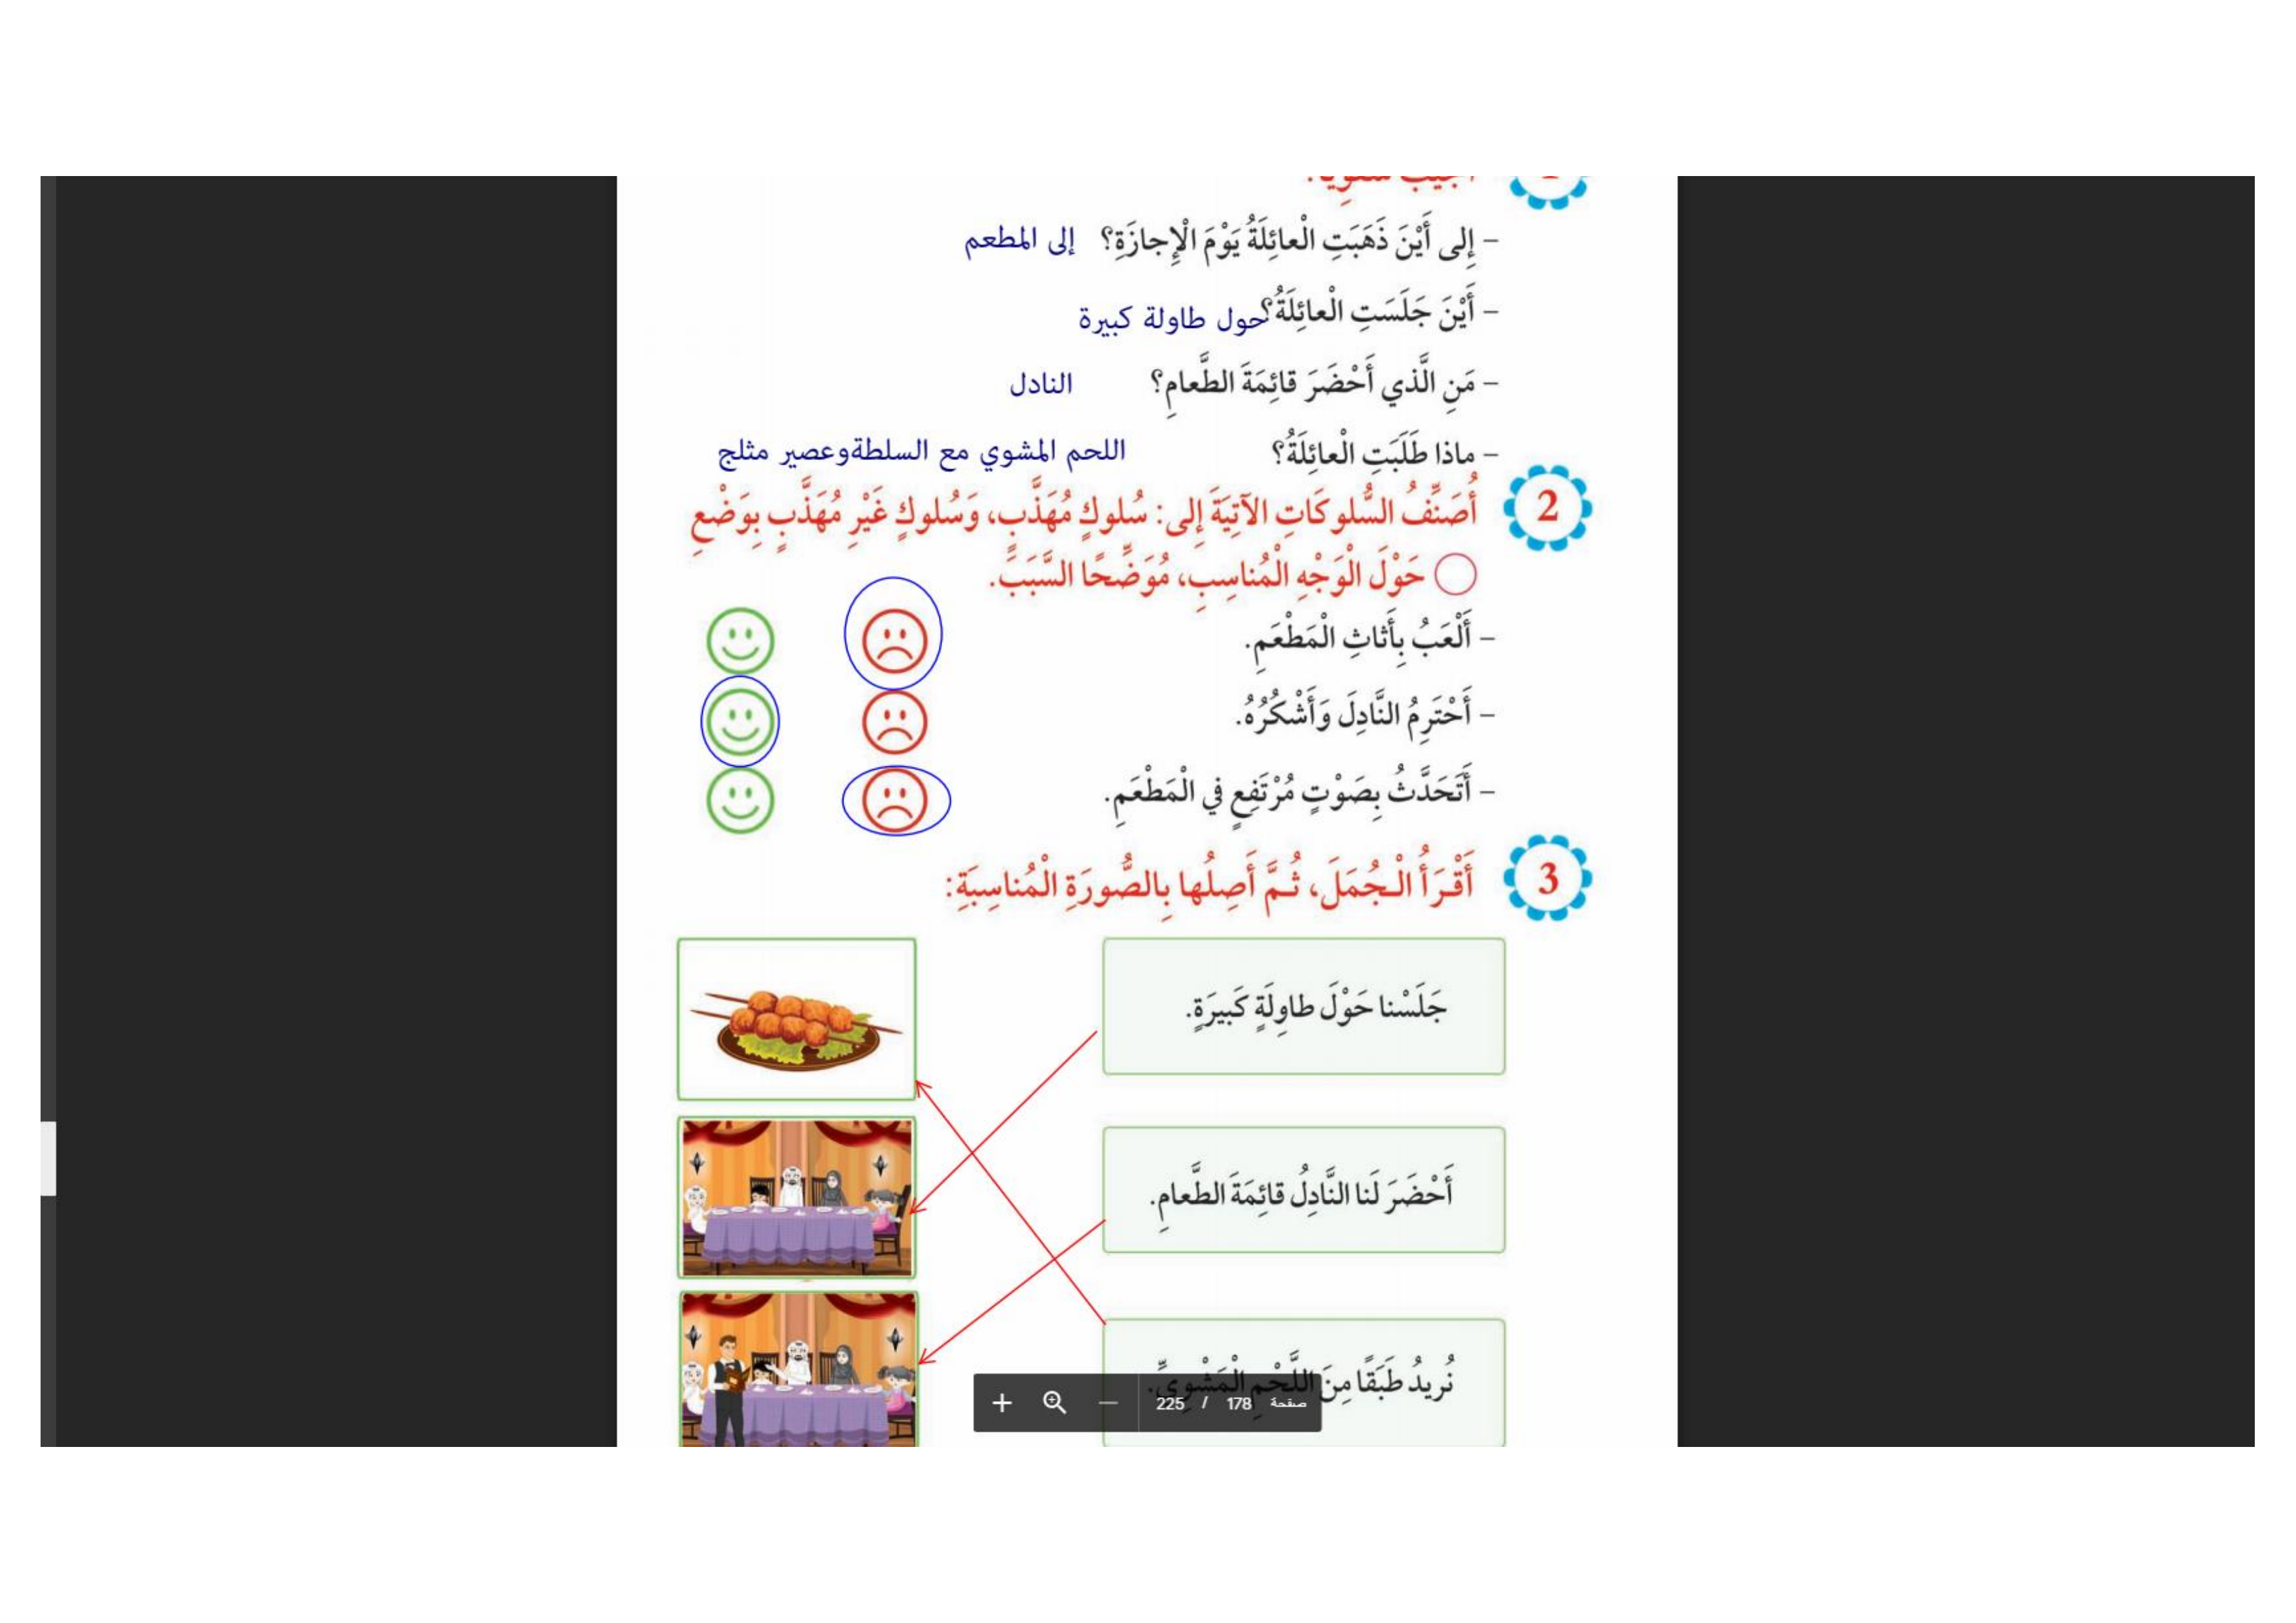 أجيب شفويا:
– إِلى أَيْنَ ذَهَبَتِ الْعائِلَةُ يَوْمَ الْإِجازَةِ؟ إلى المطعم
– أَيْنَ جَلَسَتِ الْعائِلَةُ؟ حول طاولة كبيرة
– مَنِ الَّذي أَحْضَرَ قائِمَةَ الطَّعامِ؟ النادل
– ماذا طَلَبَتِ الْعائِلَةُ؟ اللحم المشوي مع السلطةوعصير مثلج
2 أُصَنِّفُ السُّلوكَاتِ الآتِيَةَ إِلى: سُلوكٍ مُهَذَّبٍ، وَسُلوكٍ غَيْرِ مُهَذَّبٍ بِوَضْعِ
حَوْلَ الْوَجْهِ الْمُناسِبِ، مُوَضِّحًا السَّبَبَ.
– أَلْعَبُ بِأَثاثِ الْمَطْعَمِ.
– أَحْتَرِمُ النَّادِلَ وَأَشْكُرُهُ.
– أَتَحَدَّثُ بِصَوْتٍ مُرْتَفِعٍ في الْمَطْعَمِ.
3 أَقْرَأُ الْجُمَلَ، ثُمَّ أَصِلُها بِالصُّورَةِ الْمُناسِبَةِ:
جَلَسْنا حَوْلَ طاوِلَةٍ كَبيرَةٍ.
أَحْضَرَ لَنا النَّادِلُ قائِمَةَ الطَّعامِ.
نُريدُ طَبَقًا مِنَ اللَّحْمِ الْمَشْوِيِّ.
صفحة 178 / 225